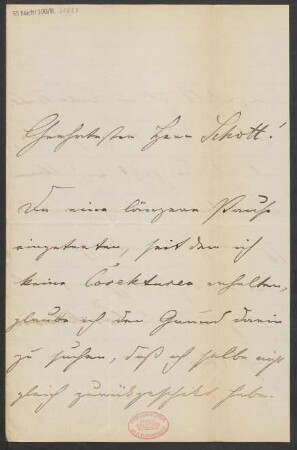 55 Nachl 100/B,
Geehrtester Herr Schott!
Da eine längere Pause
eingetreten, seit dem ich
keine Corekturen erhalten,
glaube ich den Grund darin
zu suchen, daß ich selbe nicht
gleich zurückgeschickt habe.